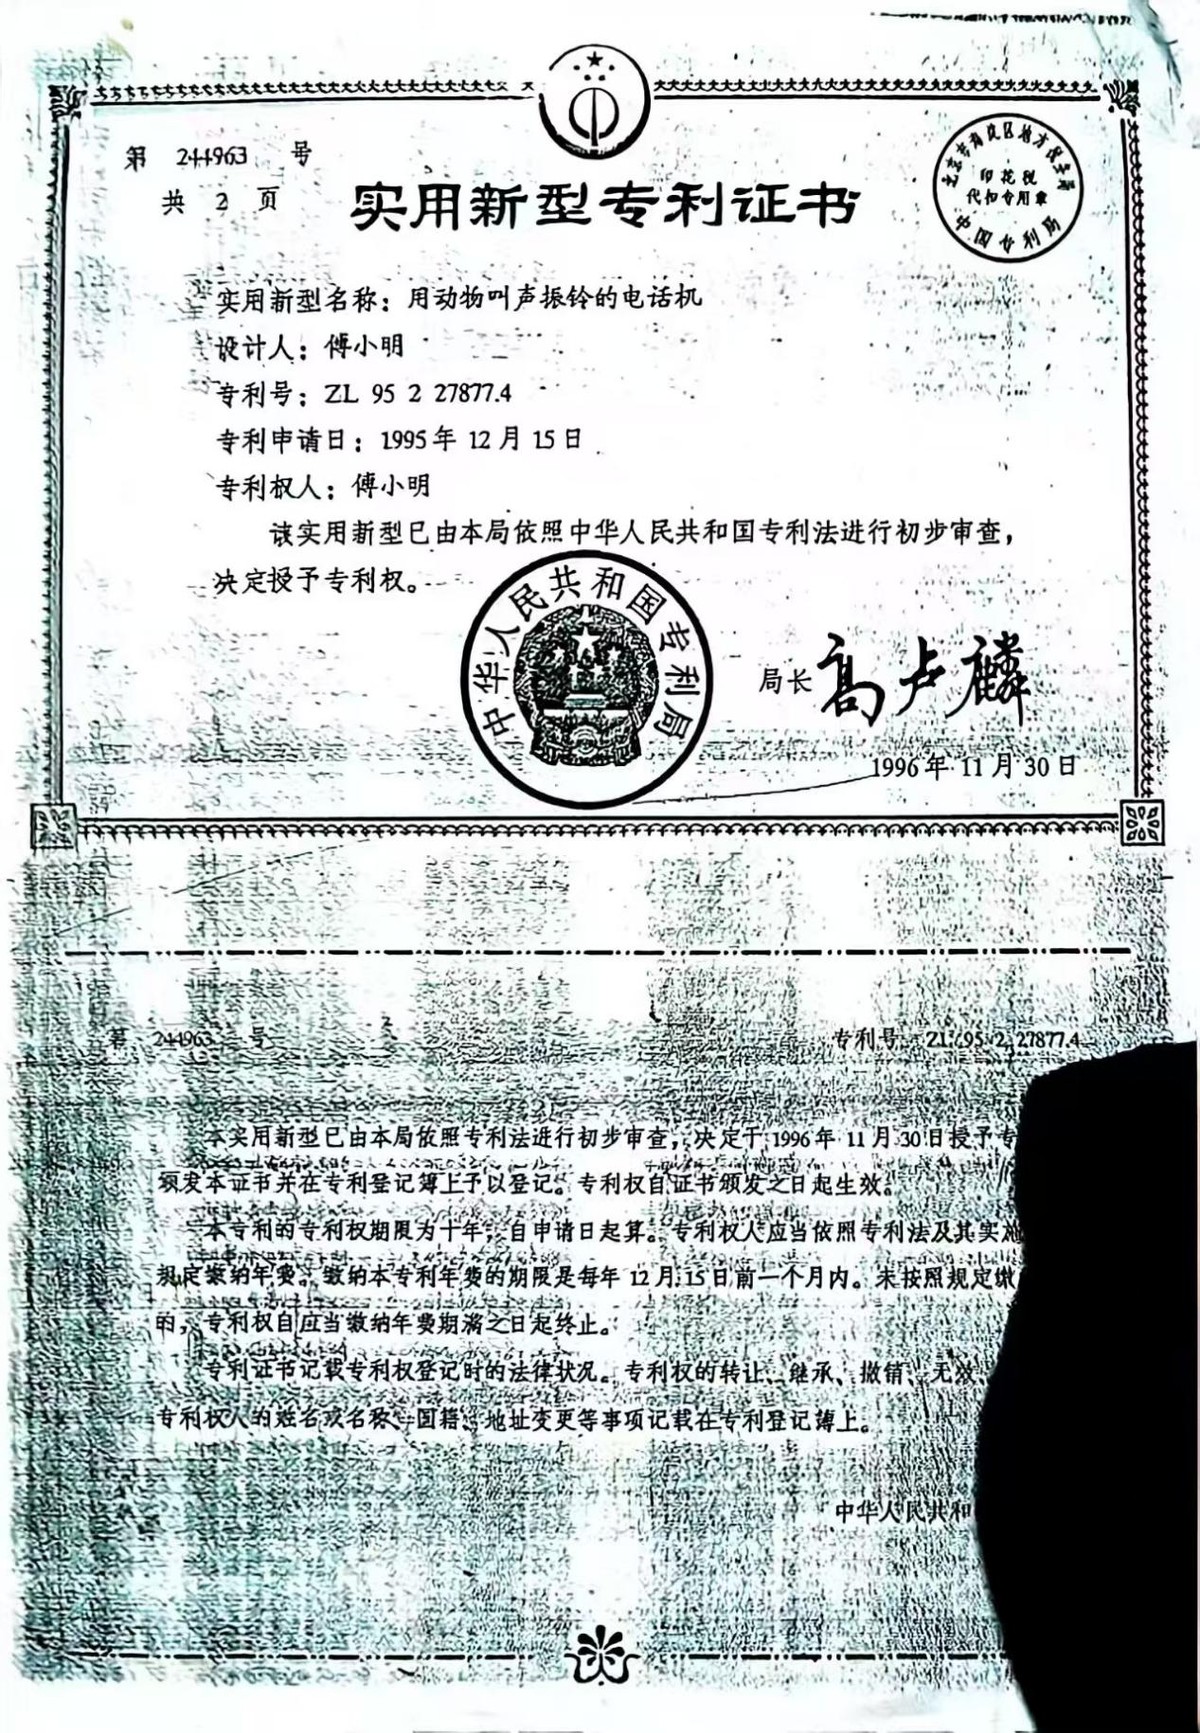 第 244963 号
共 2 页
实用新型专利证书
印花税
代扣专用章
中国专利局
实用新型名称：用动物叫声振铃的电话机
设计人：傅小明
专利号：ZL 95 2 27877.4
专利申请日：1995年 12月 15日
专利权人：傅小明
该实用新型已由本局依照中华人民共和国专利法进行初步审查，
决定授予专利权。
中华人民共和国专利局
局长 高卢麟
1996年 11月 30日
第 244963 号
专利号 ZL 95 2 27877.4
本实用新型已由本局依照专利法进行初步审查，决定于 1996年 11月 30日授予专
颁发本证书并在专利登记簿上予以登记。专利权自证书颁发之日起生效。
本专利的专利权期限为十年，自申请日起算。专利权人应当依照专利法及其实施
规定缴纳年费。缴纳本专利年费的期限是每年 12月 15日前一个月内。未按照规定缴
的，专利权自应当缴纳年费期满之日起终止。
专利证书记载专利权登记时的法律状况。专利权的转让、继承、撤销、无效、
专利权人的姓名或名称、国籍、地址变更等事项记载在专利登记簿上。
中华人民共和